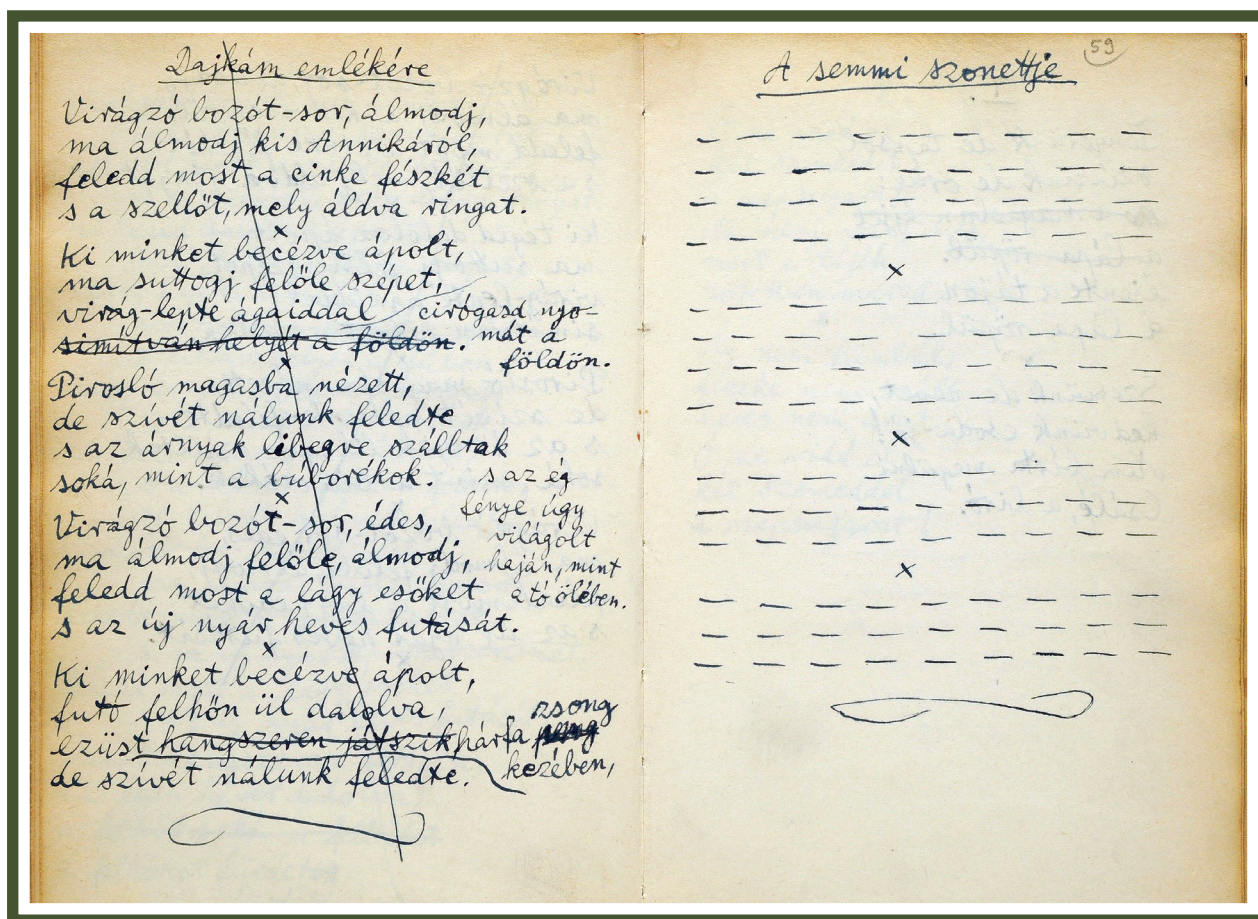 Dajkám emlékére
Virágzó bozót-sor, álmodj,
ma álmodj kis Annikáról,
feledd most a cinke fészkét
s a szellőt, mely áldva ringat.
x
Ki minket becézve ápolt,
ma suttogj felőle szépet,
virág-lepte ágaiddal cirógasd nyo-
simítván helyét a földön. mát a
földön.
x
Pirosló magasba nézett,
de szívét nálunk feledte
s az árnyak libegve szálltak
soká, mint a buborékok. s az ég
x fénye úgy
Virágzó bozót-sor, édes, világolt
ma álmodj felőle, álmodj, haján, mint
feledd most a lágy esőket a tó ölében.
s az új nyár heves futását.
x
Ki minket becézve ápolt,
futó felhőn ül dalolva, zsong
ezüst hangszeren játszik, hárfa
de szívét nálunk feledte. kezében,
59
A semmi szonettje
— — — — — — — — —
— — — — — — — — —
— — — — — — — — —
— — — — — — — — —
x
— — — — — — — — —
— — — — — — — — —
— — — — — — — — —
— — — — — — — — —
x
— — — — — — — — —
— — — — — — — — —
— — — — — — — — —
x
— — — — — — — — —
— — — — — — — — —
— — — — — — — — —